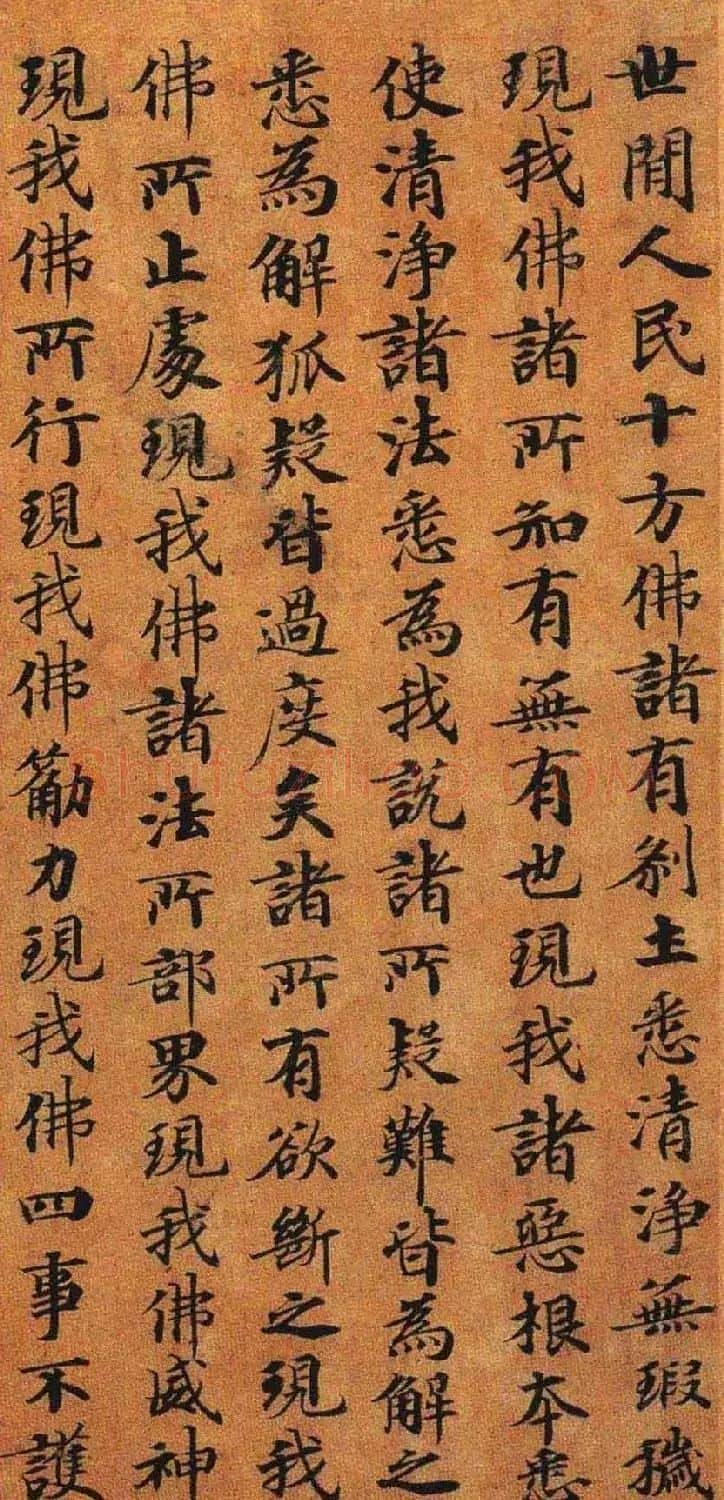 世間人民十方佛諸有剎土悉清淨無瑕穢
現我佛諸所知有無有也現我諸惡根本悉
使清淨諸法悉為我說諸所疑難皆為解之
悉為解狐疑皆過度矣諸所有欲斷之現我
佛所止處現我佛諸法所部界現我佛威神
現我佛所行現我佛勸力現我佛四事不護